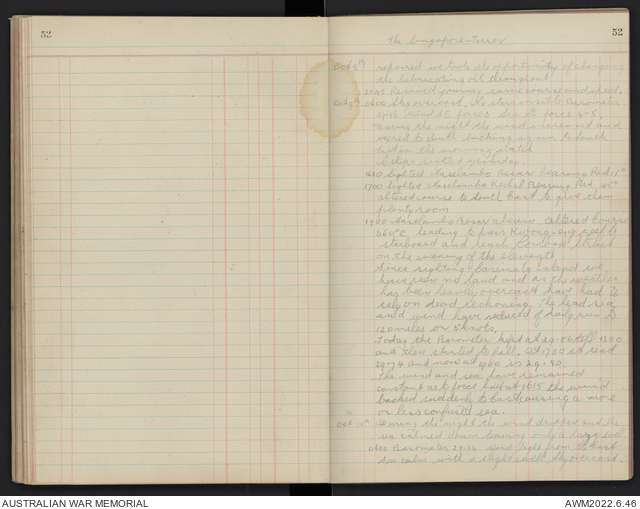 52
52
The Singapore-Terror
Oct 8th repaired we took the opportunity of changing
the lubricating oil throughout.
2045 Resumed journey same course and speed.
Oct 9th 0600 Sky overcast. No stars visible Barometer
Wind SE force 5 Sea force 4-5.
During the night the wind increased and
veered to South backing again to South
East in the morning watch
sighted yesterday
1630 Sighted Masalembo Besar bearing Red
1700 Sighted Masalembo Kechil Bearing Red
altered course to South East to give them
plenty room
1900 Masalembo Besar abeam. Altered course
S60°E leading to pass reef to
starboard and reach Lombok Strait
on the evening of the eleventh.
Since sighting we
have seen no land and as the weather
has been heavily overcast have had to
rely on dead reckoning. The head sea
and wind have reduced our daily run to
120 miles or 5 knots.
Today the Barometer kept at 29.86 till 1200
and then started to fall. At 1700 it read
29.74 and now at 1900 is 29.80
The wind and sea have remained
constant at force but at 1615 the wind
backed suddenly to East causing a more
or less confused sea.
Oct 10th During the night the wind dropped and the
sea calmed down leaving only a large swell.
0600 Barometer 29.84 wind light from
Sea calm with a slight swell Sky overcast
AUSTRALIAN WAR MEMORIAL
AWM2022.6.46